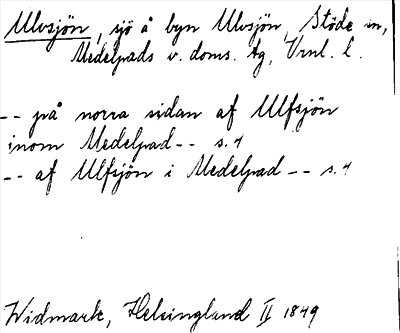 Ulvsjön, sjö å byn Ulvsjön, Stöde sn,
Medelpads v. doms. tg, Vrnl. l.
-- på norra sidan af Ulfsjön
inom Medelpad -- s. 4
-- af Ulfsjön i Medelpad -- s. 4
Widmark, Helsingland II 1849